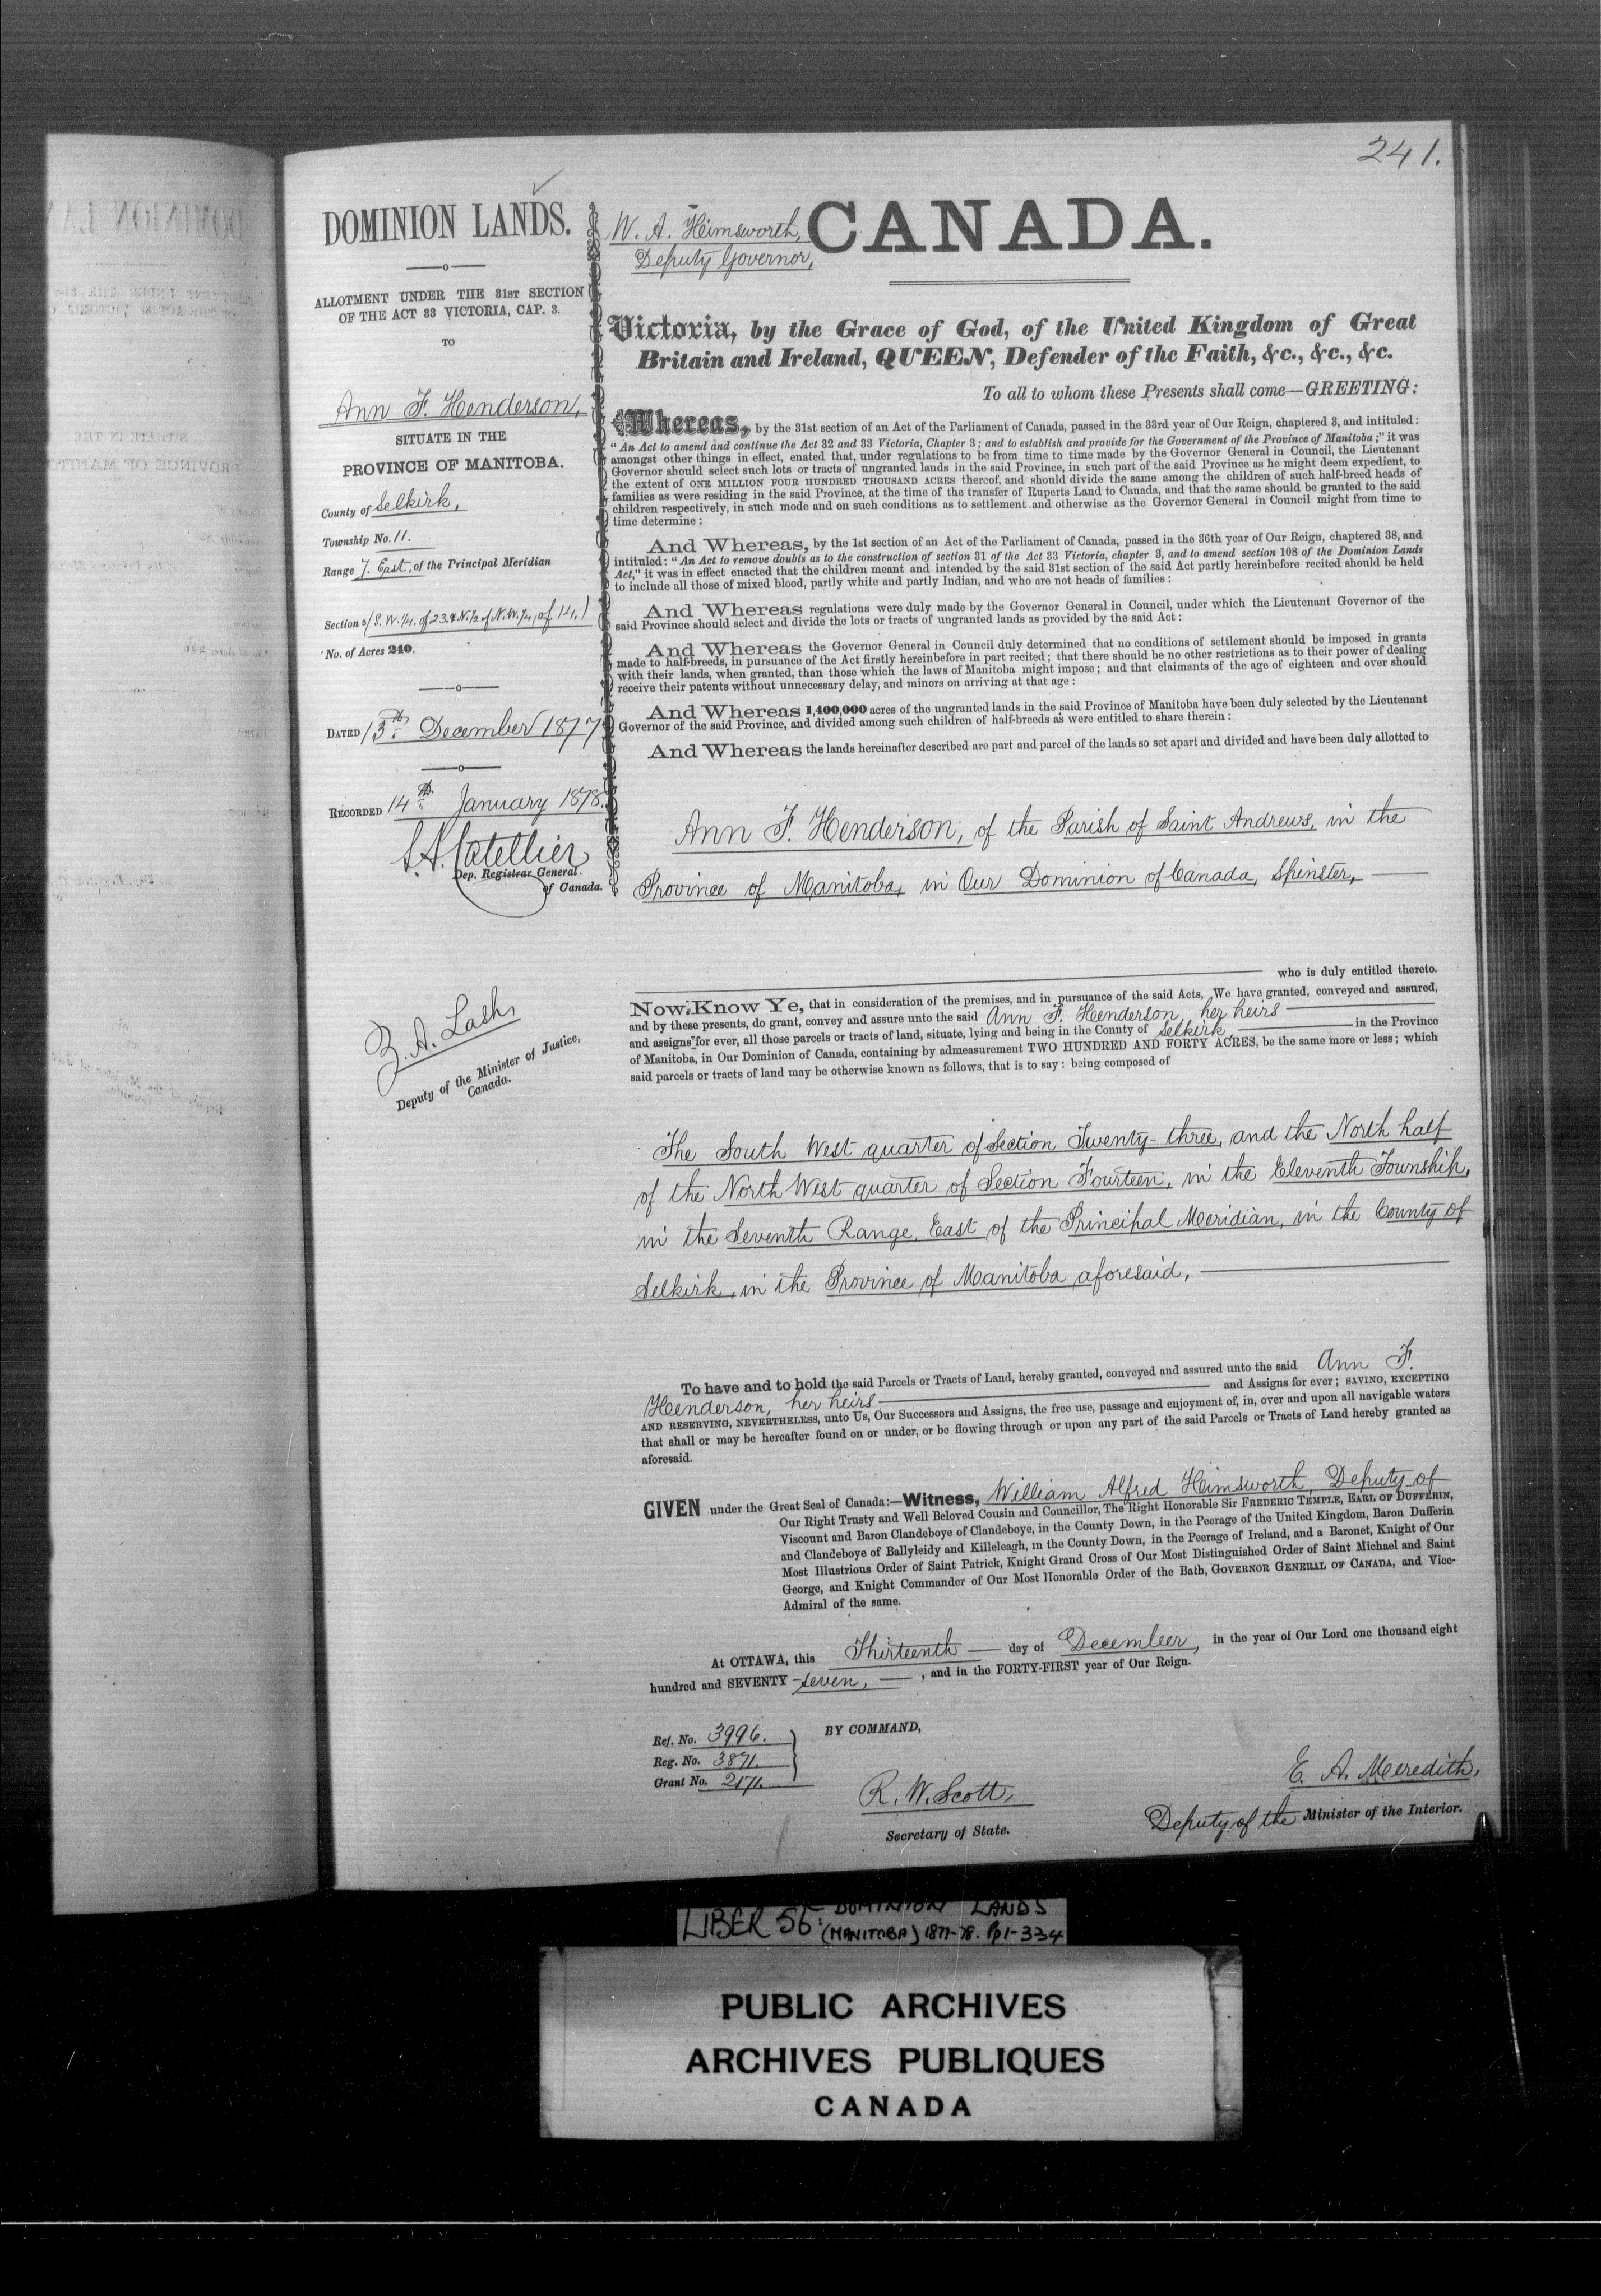 241.
DOMINION LANDS.
ALLOTMENT UNDER THE 31ST SECTION
OF THE ACT 33 VICTORIA, CAP. 3.
TO
Ann F. Henderson,
SITUATE IN THE
PROVINCE OF MANITOBA.
County of Selkirk,
Township No. 11.
Range 7. East, of the Principal Meridian
Section s/(S. W. 1/4. of 23. & N. 1/2 of N. W. 1/4, of 14.)
No. of Acres 240.
DATED 13th December 1877
RECORDED 14th January 1878.
Dep. Registrar General
of Canada.
Z. A. Lash,
Deputy of the Minister of Justice,
Canada.
W. A. Himsworth,
Deputy Governor,
CANADA.
Victoria, by the Grace of God, of the United Kingdom of Great
Britain and Ireland, QUEEN, Defender of the Faith, &c., &c., &c.
To all to whom these Presents shall come—GREETING:
Whereas, by the 31st section of an Act of the Parliament of Canada, passed in the 33rd year of Our Reign, chaptered 3, and intituled:
"An Act to amend and continue the Act 32 and 33 Victoria, Chapter 3; and to establish and provide for the Government of the Province of Manitoba;" it was
amongst other things in effect, enated that, under regulations to be from time to time made by the Governor General in Council, the Lieutenant
Governor should select such lots or tracts of ungranted lands in the said Province, in such part of the said Province as he might deem expedient, to
the extent of ONE MILLION FOUR HUNDRED THOUSAND ACRES thereof, and should divide the same among the children of such half-breed heads of
families as were residing in the said Province, at the time of the transfer of Ruperts Land to Canada, and that the same should be granted to the said
children respectively, in such mode and on such conditions as to settlement and otherwise as the Governor General in Council might from time to
time determine:
And Whereas, by the 1st section of an Act of the Parliament of Canada, passed in the 36th year of Our Reign, chaptered 38, and
intituled: "An Act to remove doubts as to the construction of section 31 of the Act 33 Victoria, chapter 3, and to amend section 108 of the Dominion Lands
Act," it was in effect enacted that the children meant and intended by the said 31st section of the said Act partly hereinbefore recited should be held
to include all those of mixed blood, partly white and partly Indian, and who are not heads of families:
And Whereas regulations were duly made by the Governor General in Council, under which the Lieutenant Governor of the
said Province should select and divide the lots or tracts of ungranted lands as provided by the said Act:
And Whereas the Governor General in Council duly determined that no conditions of settlement should be imposed in grants
made to half-breeds, in pursuance of the Act firstly hereinbefore in part recited; that there should be no other restrictions as to their power of dealing
with their lands, when granted, than those which the laws of Manitoba might impose; and that claimants of the age of eighteen and over should
receive their patents without unnecessary delay, and minors on arriving at that age:
And Whereas 1,400,000 acres of the ungranted lands in the said Province of Manitoba have been duly selected by the Lieutenant
Governor of the said Province, and divided among such children of half-breeds as were entitled to share therein:
And Whereas the lands hereinafter described are part and parcel of the lands so set apart and divided and have been duly allotted to
Ann F. Henderson, of the Parish of Saint Andrews, in the
Province of Manitoba, in Our Dominion of Canada, Spinster,
who is duly entitled thereto.
Now Know Ye, that in consideration of the premises, and in pursuance of the said Acts, We have granted, conveyed and assured,
and by these presents, do grant, convey and assure unto the said Ann F. Henderson, her heirs
and assigns for ever, all those parcels or tracts of land, situate, lying and being in the County of Selkirk, in the Province
of Manitoba, in Our Dominion of Canada, containing by admeasurement TWO HUNDRED AND FORTY ACRES, be the same more or less; which
said parcels or tracts of land may be otherwise known as follows, that is to say: being composed of
The South West quarter of Section Twenty-three, and the North half
of the North West quarter of Section Fourteen, in the Eleventh Township,
in the Seventh Range, East of the Principal Meridian, in the County of
Selkirk, in the Province of Manitoba aforesaid,
To have and to hold the said Parcels or Tracts of Land, hereby granted, conveyed and assured unto the said Ann F.
Henderson, her heirs and Assigns for ever; SAVING, EXCEPTING
AND RESERVING, NEVERTHELESS, unto Us, Our Successors and Assigns, the free use, passage and enjoyment of, in, over and upon all navigable waters
that shall or may be hereafter found on or under, or be flowing through or upon any part of the said Parcels or Tracts of Land hereby granted as
aforesaid.
GIVEN under the Great Seal of Canada:—Witness, William Alfred Himsworth, Deputy of
Our Right Trusty and Well Beloved Cousin and Councillor, The Right Honorable Sir FREDERIC TEMPLE, EARL OF DUFFERIN,
Viscount and Baron Clandeboye of Clandeboye, in the County Down, in the Peerage of the United Kingdom, Baron Dufferin
and Clandeboye of Ballyleidy and Killeleagh, in the County Down, in the Peerage of Ireland, and a Baronet, Knight of Our
Most Illustrious Order of Saint Patrick, Knight Grand Cross of Our Most Distinguished Order of Saint Michael and Saint
George, and Knight Commander of Our Most Honorable Order of the Bath, GOVERNOR GENERAL OF CANADA, and Vice-
Admiral of the same.
At OTTAWA, this Thirteenth day of December, in the year of Our Lord one thousand eight
hundred and SEVENTY-seven, , and in the FORTY-FIRST year of Our Reign.
Ref. No. 3996.
Reg. No. 3871.
Grant No. 2171.
BY COMMAND,
R. W. Scott,
Secretary of State.
E. A. Meredith,
Deputy of the Minister of the Interior.
LIBER 56: DOMINION LANDS
(MANITOBA) 1877-78. Pp1-334
PUBLIC ARCHIVES
ARCHIVES PUBLIQUES
CANADA